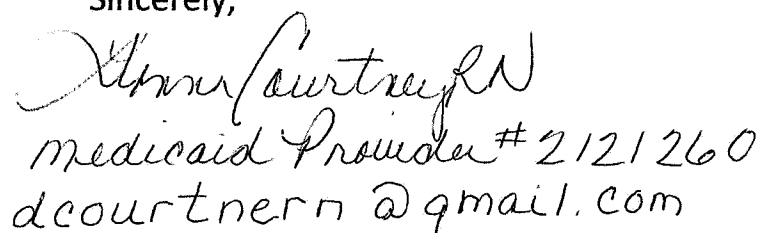 Sincerely,
Courtney RN
medicaid Provider #2121260
dcourtnern@gmail.com